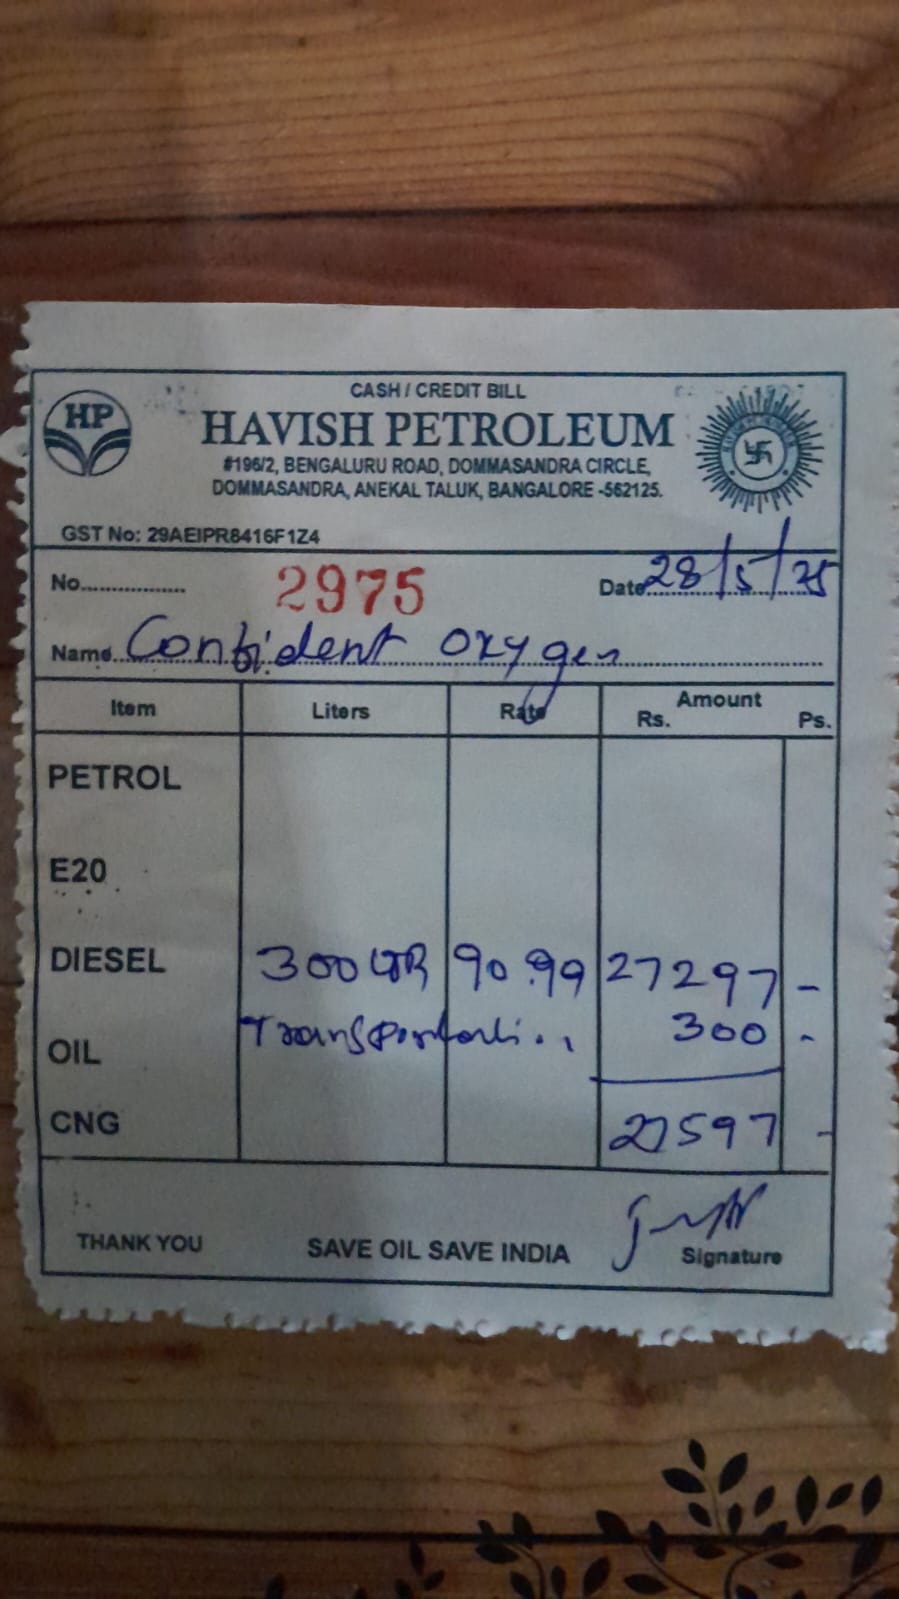 CASH / CREDIT BILL
HP
HAVISH PETROLEUM
#196/2, BENGALURU ROAD, DOMMASANDRA CIRCLE,
DOMMASANDRA, ANEKAL TALUK, BANGALORE -562125.
GST No: 29AEIPR8416F1Z4
No................. 2975 Date 28/5/25
Name Confident Oxygen
Item Liters Rate Amount
Rs. Ps.
PETROL
E20
DIESEL 300 LTR 90.99 27297 -
Transportati.. 300 -
OIL
CNG 27597 -
THANK YOU SAVE OIL SAVE INDIA Signature